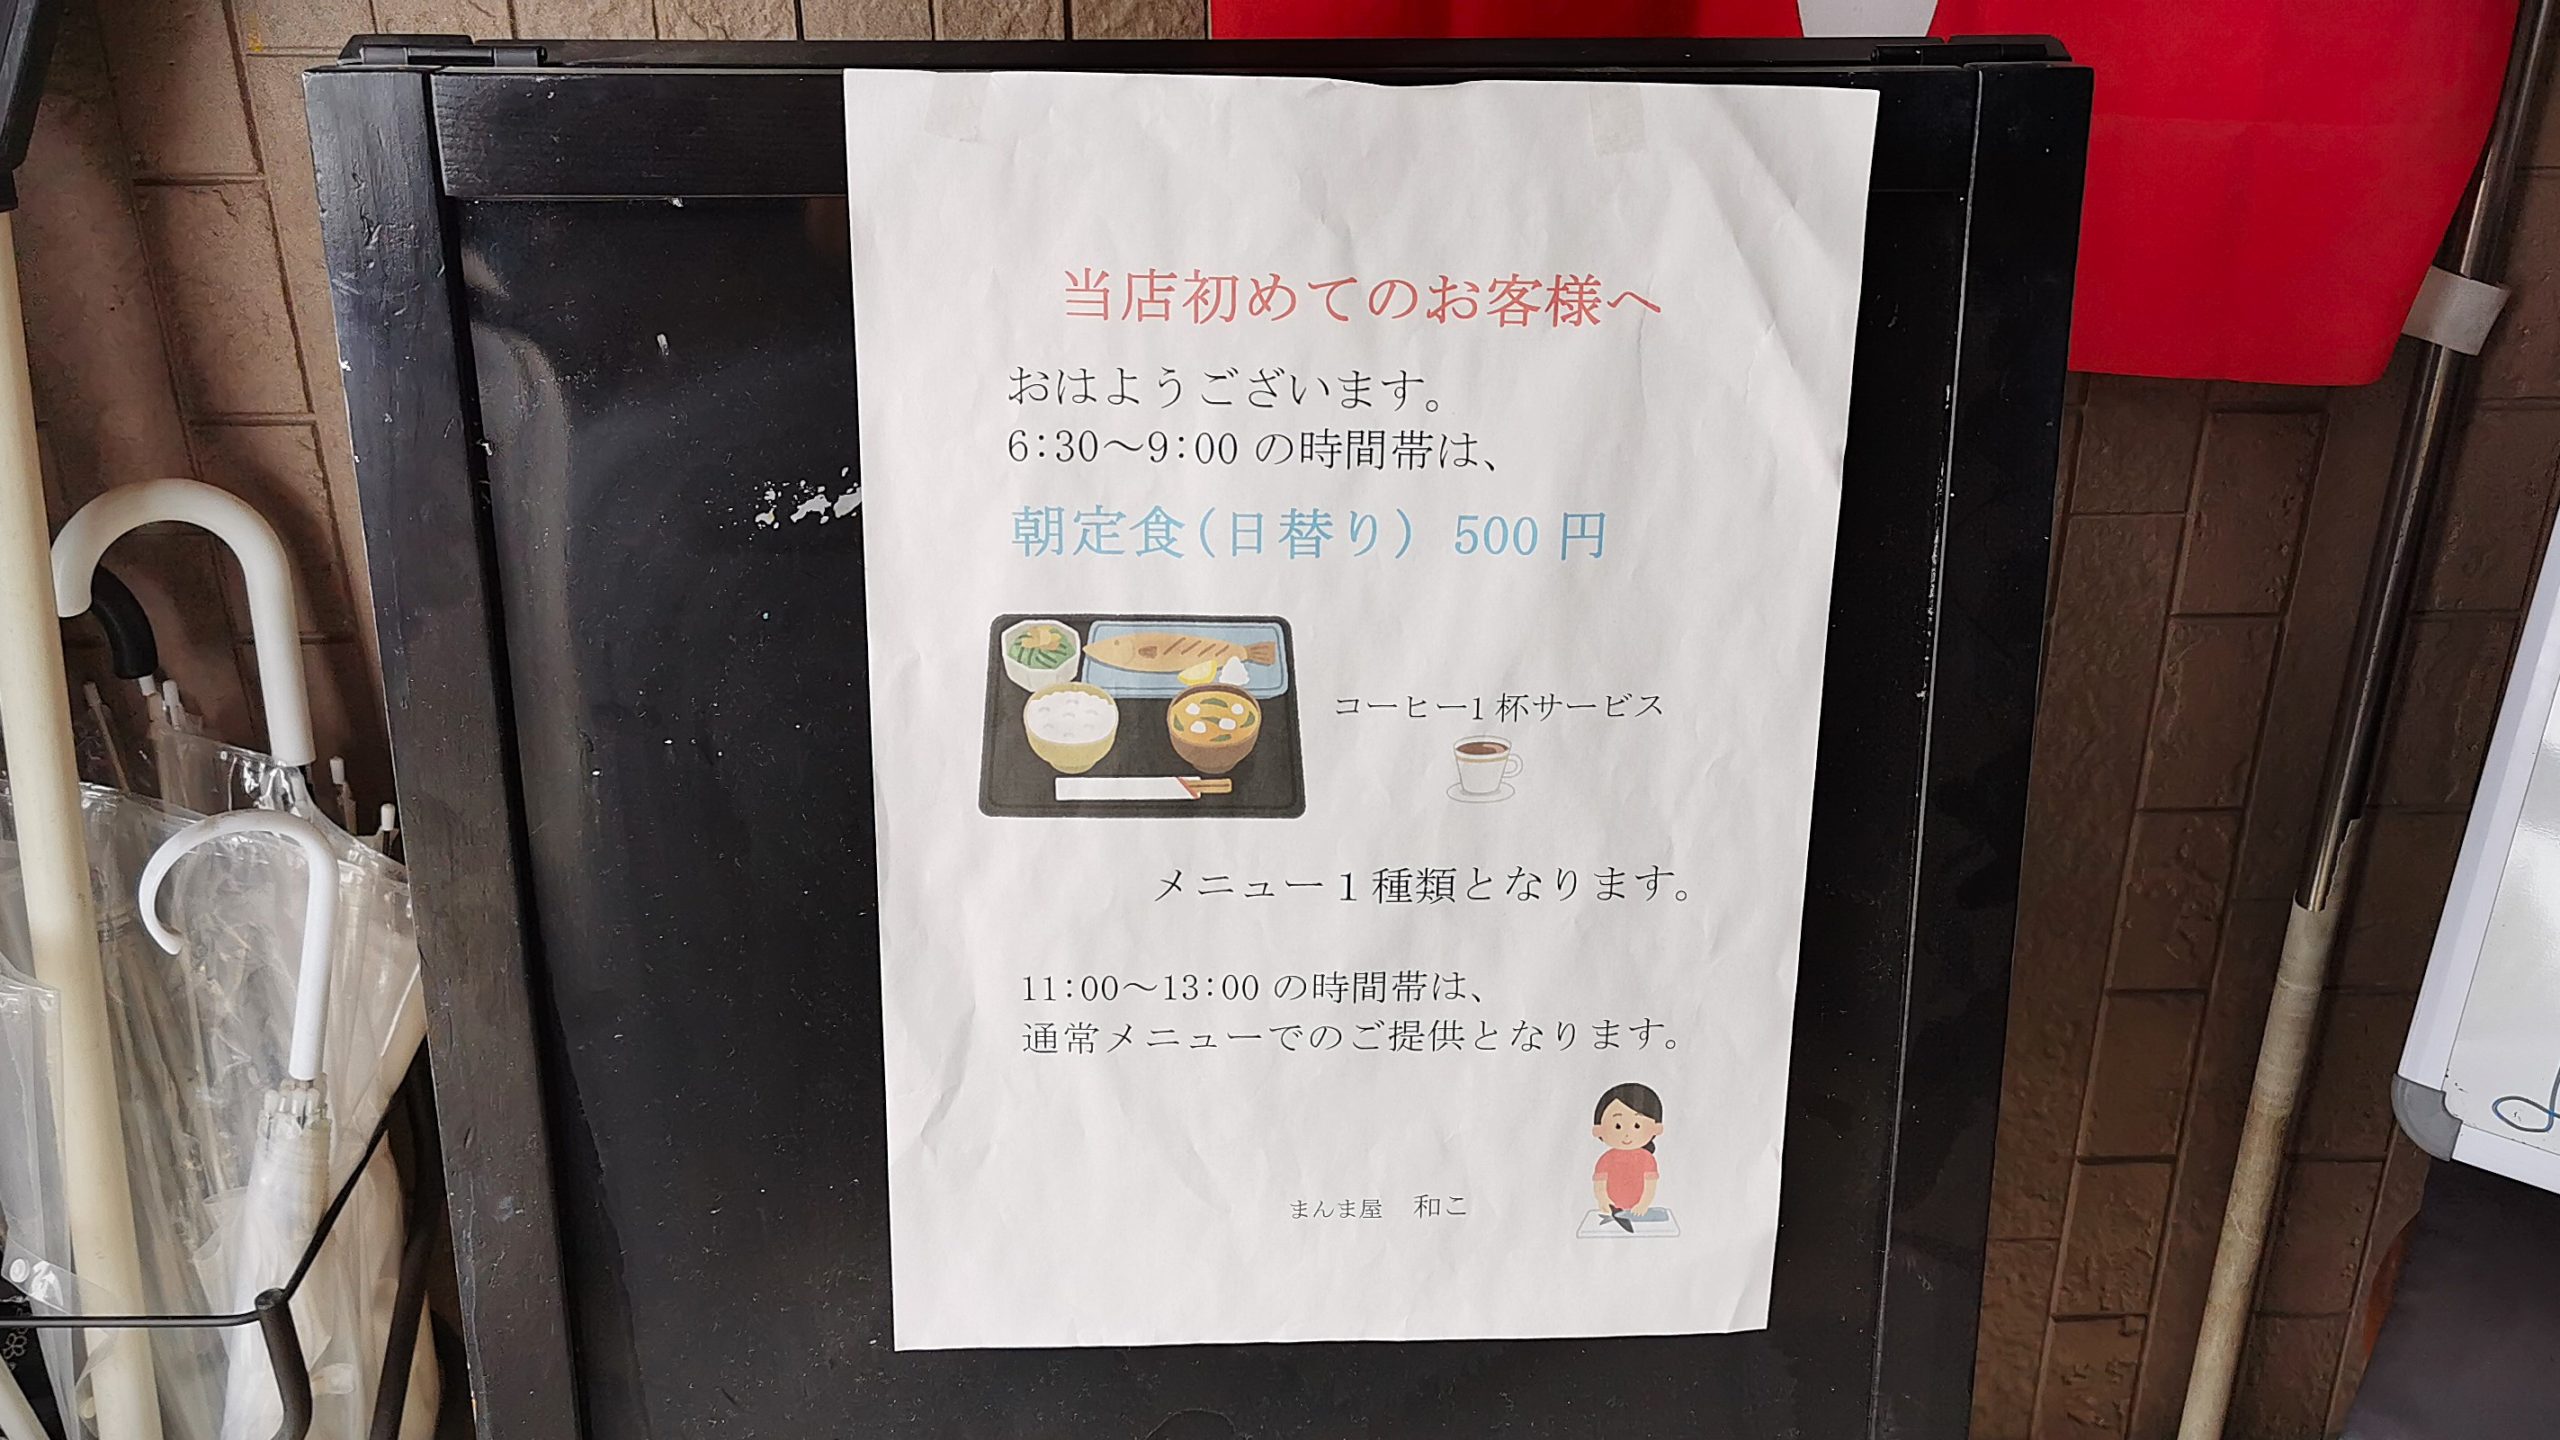 当店初めてのお客様へ
おはようございます。
6:30～9:00 の時間帯は、
朝定食(日替り) 500 円
コーヒー1 杯サービス
メニュー 1 種類となります。
11:00～13:00 の時間帯は、
通常メニューでのご提供となります。
まんま屋　和こ